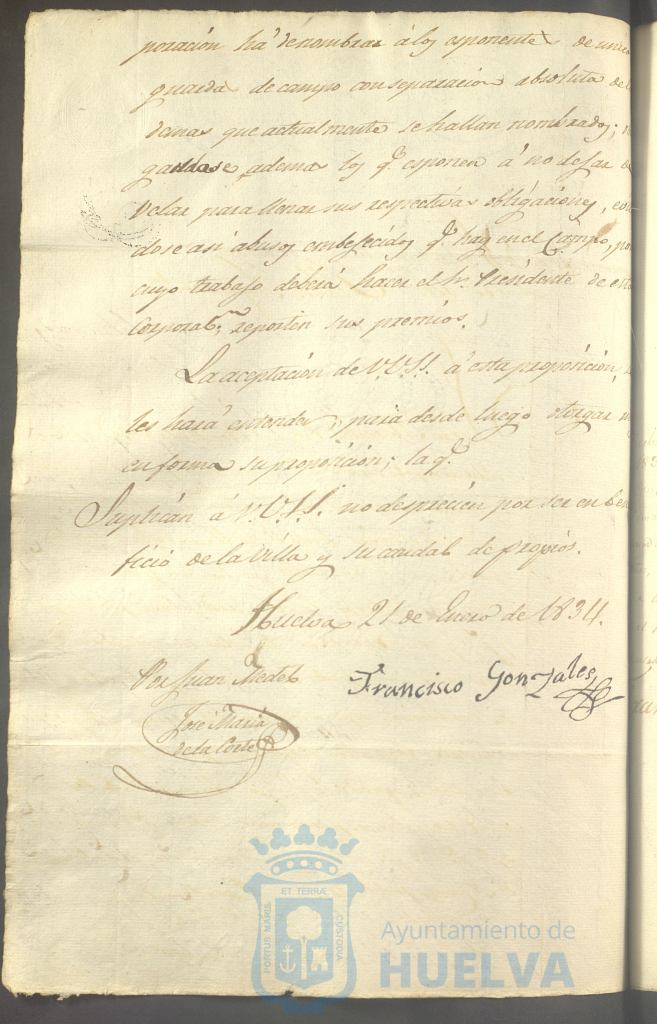 poracion há de nombrar á los esponentes de unico
guarda de campo con separacion absoluta de
demas que actualmente se hallan nombrados;
gandose ademas los q.e esponen á no dejar de
velar para llenar sus respectivas obligaciones,
dose asi abusos embejecidos q.e hay en el Campo, po
cuyo trabajo deberá hacer el Sr. Presidente de esta
Corporac.n reporten sus premios.
La aceptacion de V.V.S.S. á esta proposicion
les hará entender, para desde luego otorgar
en forma su proposicion; la q.e
Suplican á V.V.S.S. no desprecien por ser en bene
ficio de la Villa y su caudal de propios.
Huelva 21 de Enero de 1834.
Por Juan Medel
Francisco Gonzales
José Maria
de la Corte
ET TERRÆ
PORTUS MARIS
CUSTODIA
Ayuntamiento de
HUELVA